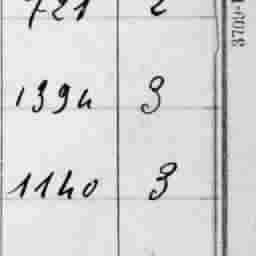 721 2
1394 3
1140 3
3709-